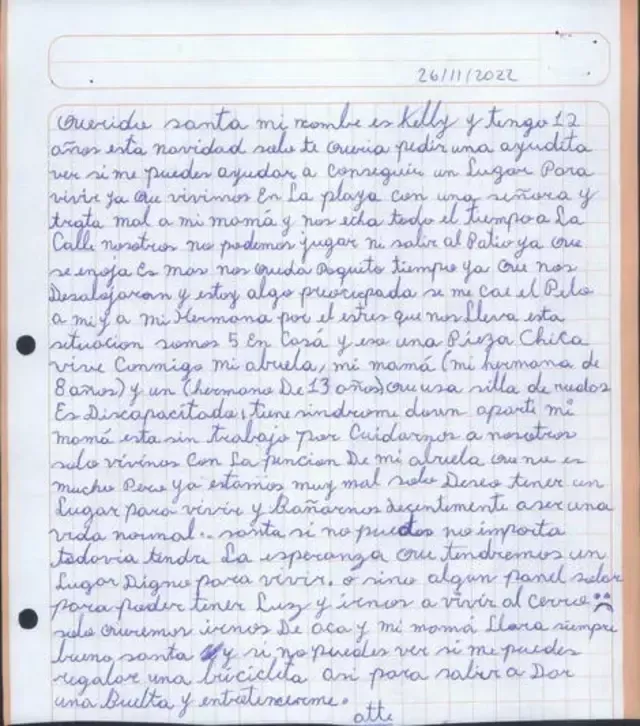 26/11/2022
Querido santa mi nombre es Kelly y tengo 12
años esta navidad solo te queria pedir una ayudita
ver si me puedes ayudar a conseguir un Lugar Para
vivir ya que vivimos En La playa con una señora y
trata mal a mi mamá y nos echa todo el tiempo a La
Calle nosotros no podemos jugar ni salir al Patio ya que
se enoja Es mas nos queda Poquito tiempo ya que nos
Desalojaran y estoy algo preocupada se me cae el Pelo
a mi y a mi Hermana por el estres que nos Lleva esta
situacion somos 5 En Casá y esa una Pieza Chica
vive Conmigo mi abuela, mi mamá (mi hermana de
8 años) y un (hermano De 13 años) que usa silla de ruedas
Es Discapacitado, tiene sindrome down aparte mi
mamá esta sin trabajo por Cuidarnos a nosotros
solo vivinos Con La pencion De mi abuela que no es
mucho Pero ya estamos muy mal solo Deseo tener un
Lugar para vivir y Bañarnos decentemente a ser una
vida normal.. santa si no puedes no importa
todovia tendre La esperanza que tendremos un
Lugar Digno para vivir. o sino algun panel solar
para poder tener Luz y irnos a vivir al cerro
solo queremos irnos De aca y mi mamá Llora siempre
bueno santa y si no puedes ver si me puedes
regalar una bicicleta asi para salir a Dar
una Buelta y entretenerme.
atte